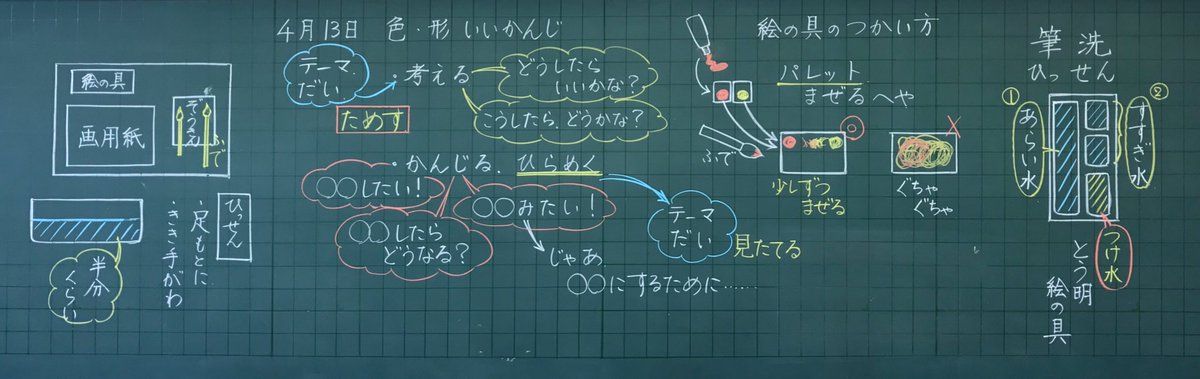 4月13日 色・形 いいかんじ
絵の具
画用紙
ぞうきん
ふで
半分
くらい
ひっせん
・足もとに
・きき手がわ
テーマ、
だい
・考える
どうしたら
いいかな?
こうしたら、どうかな?
ためす
・かんじる、ひらめく
○○したい!
○○みたい!
○○したら
どうなる?
じゃあ、
○○にするために……
テーマ
だい
見たてる
絵の具のつかい方
パレット
まぜるへや
ふで
少しずつ
まぜる
ぐちゃ
ぐちゃ
筆洗
ひっせん
①
あらい水
②
すすぎ水
つけ水
とう明
絵の具